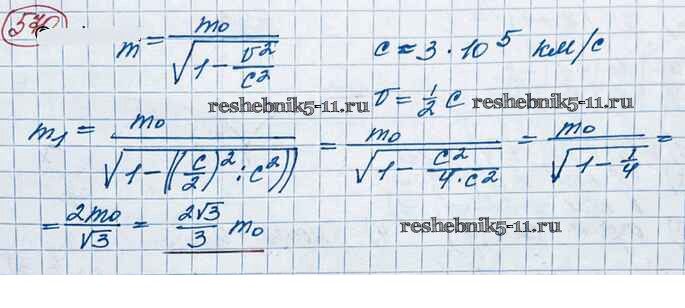 570
m = m₀ / √(1 - v²/c²)   c ≈ 3 · 10⁵ км/с
reshebnik5-11.ru   v = 1/2 c   reshebnik5-11.ru
m₁ = m₀ / √(1 - ((c/2)² : c²)) = m₀ / √(1 - c²/(4·c²)) = m₀ / √(1 - 1/4) =
= 2m₀/√3 = 2√3/3 m₀   reshebnik5-11.ru